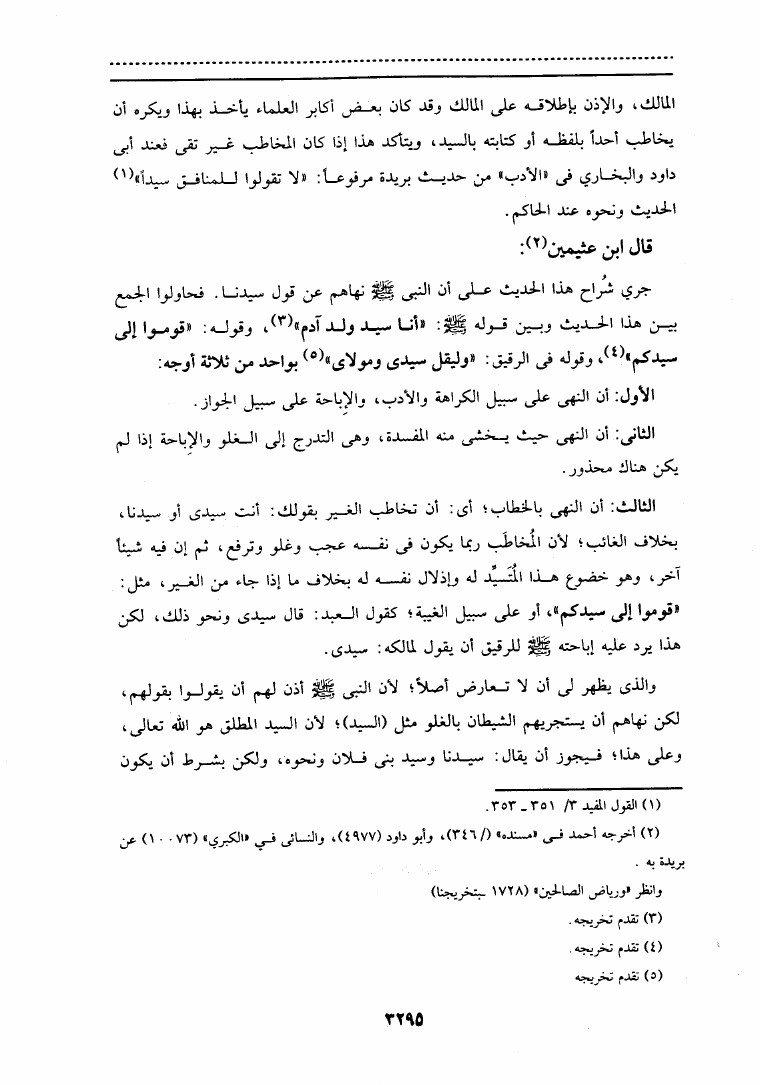 المالك، والإذن بإطلاقه على المالك وقد كان بعض أكابر العلماء يأخذ بهذا ويكره أن
يخاطب أحداً بلفظه أو كتابته بالسيد، ويتأكد هذا إذا كان المخاطب غير تقى فعند أبى
داود والبخاري فى «الأدب» من حديث بريدة مرفوعاً: «لا تقولوا للمنافق سيداً»(١)
الحديث ونحوه عند الحاكم.
قال ابن عثيمين(٢):
جري شُراح هذا الحديث على أن النبى ﷺ نهاهم عن قول سيدنا. فحاولوا الجمع
بين هذا الحديث وبين قوله ﷺ: «أنا سيد ولد آدم»(٣)، وقوله: «قوموا إلى
سيدكم»(٤)، وقوله فى الرقيق: «وليقل سيدى ومولاى»(٥) بواحد من ثلاثة أوجه:
الأول: أن النهى على سبيل الكراهة والأدب، والإباحة على سبيل الجواز.
الثانى: أن النهى حيث يخشى منه المفسدة، وهى التدرج إلى الغلو والإباحة إذا لم
يكن هناك محذور.
الثالث: أن النهى بالخطاب؛ أى: أن تخاطب الغير بقولك: أنت سيدى أو سيدنا،
بخلاف الغائب؛ لأن المُخاطَب ربما يكون فى نفسه عجب وغلو وترفع، ثم إن فيه شيئاً
آخر، وهو خضوع هذا المُتَسيِّد له وإذلال نفسه له بخلاف ما إذا جاء من الغير، مثل:
«قوموا إلى سيدكم»، أو على سبيل الغيبة؛ كقول العبد: قال سيدى ونحو ذلك، لكن
هذا يرد عليه إباحته ﷺ للرقيق أن يقول لمالكه: سيدى.
والذى يظهر لى أن لا تعارض أصلاً؛ لأن النبى ﷺ أذن لهم أن يقولوا بقولهم،
لكن نهاهم أن يستجريهم الشيطان بالغلو مثل (السيد)؛ لأن السيد المطلق هو الله تعالى،
وعلى هذا؛ فيجوز أن يقال: سيدنا وسيد بنى فلان ونحوه، ولكن بشرط أن يكون
(١) القول المفيد ٣/ ٣٥١ - ٣٥٣.
(٢) أخرجه أحمد فى «مسنده» (/٣٤٦)، وأبو داود (٤٩٧٧)، والنسائى فى «الكبري» (١٠٠٧٣) عن
بريدة به .
وانظر «ورياض الصالحين» (١٧٢٨ -بتخريجنا)
(٣) تقدم تخريجه.
(٤) تقدم تخريجه.
(٥) تقدم تخريجه
٣٢٩٥